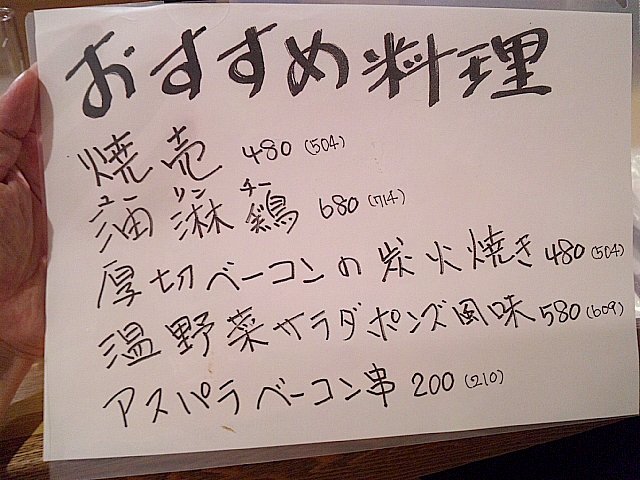 おすすめ料理
焼売 480 (504)
ユーリンチー
油淋鶏 680 (714)
厚切ベーコンの炭火焼き 480 (504)
温野菜サラダポンズ風味 580 (609)
アスパラベーコン串 200 (210)